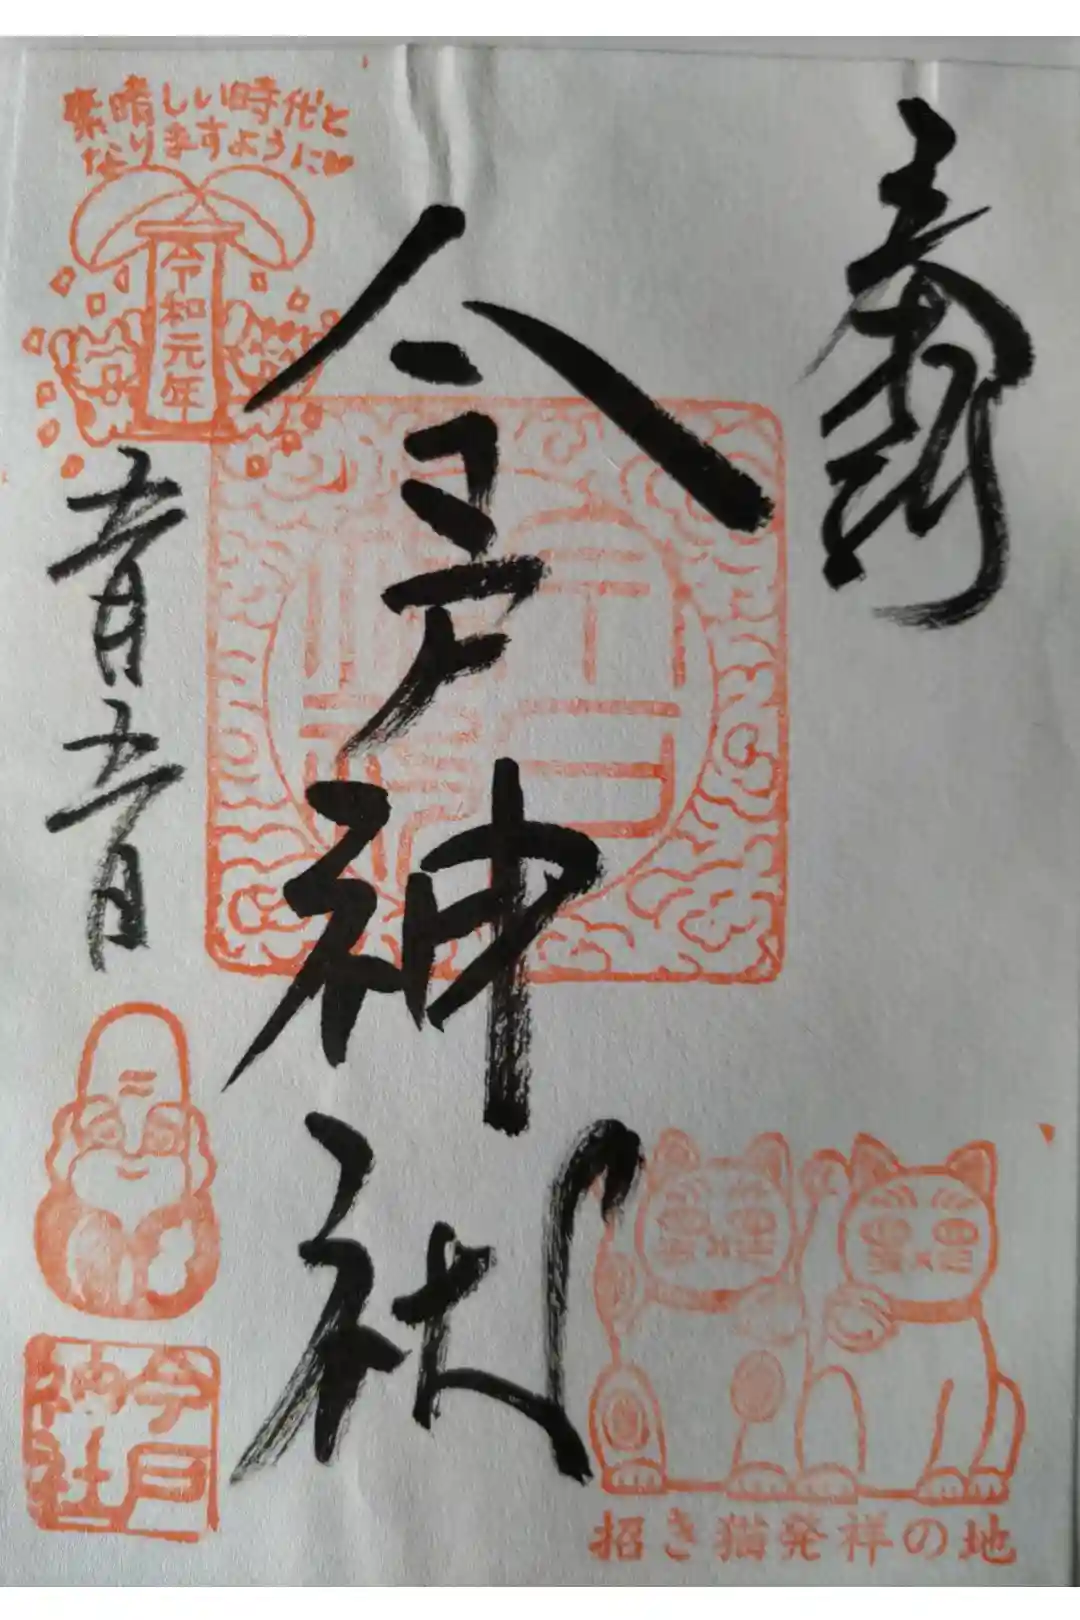 奉拝
今戸神社
素晴しい時代と
なりますように♥
令和元年
五月五日
今戸
神社
招き猫発祥の地